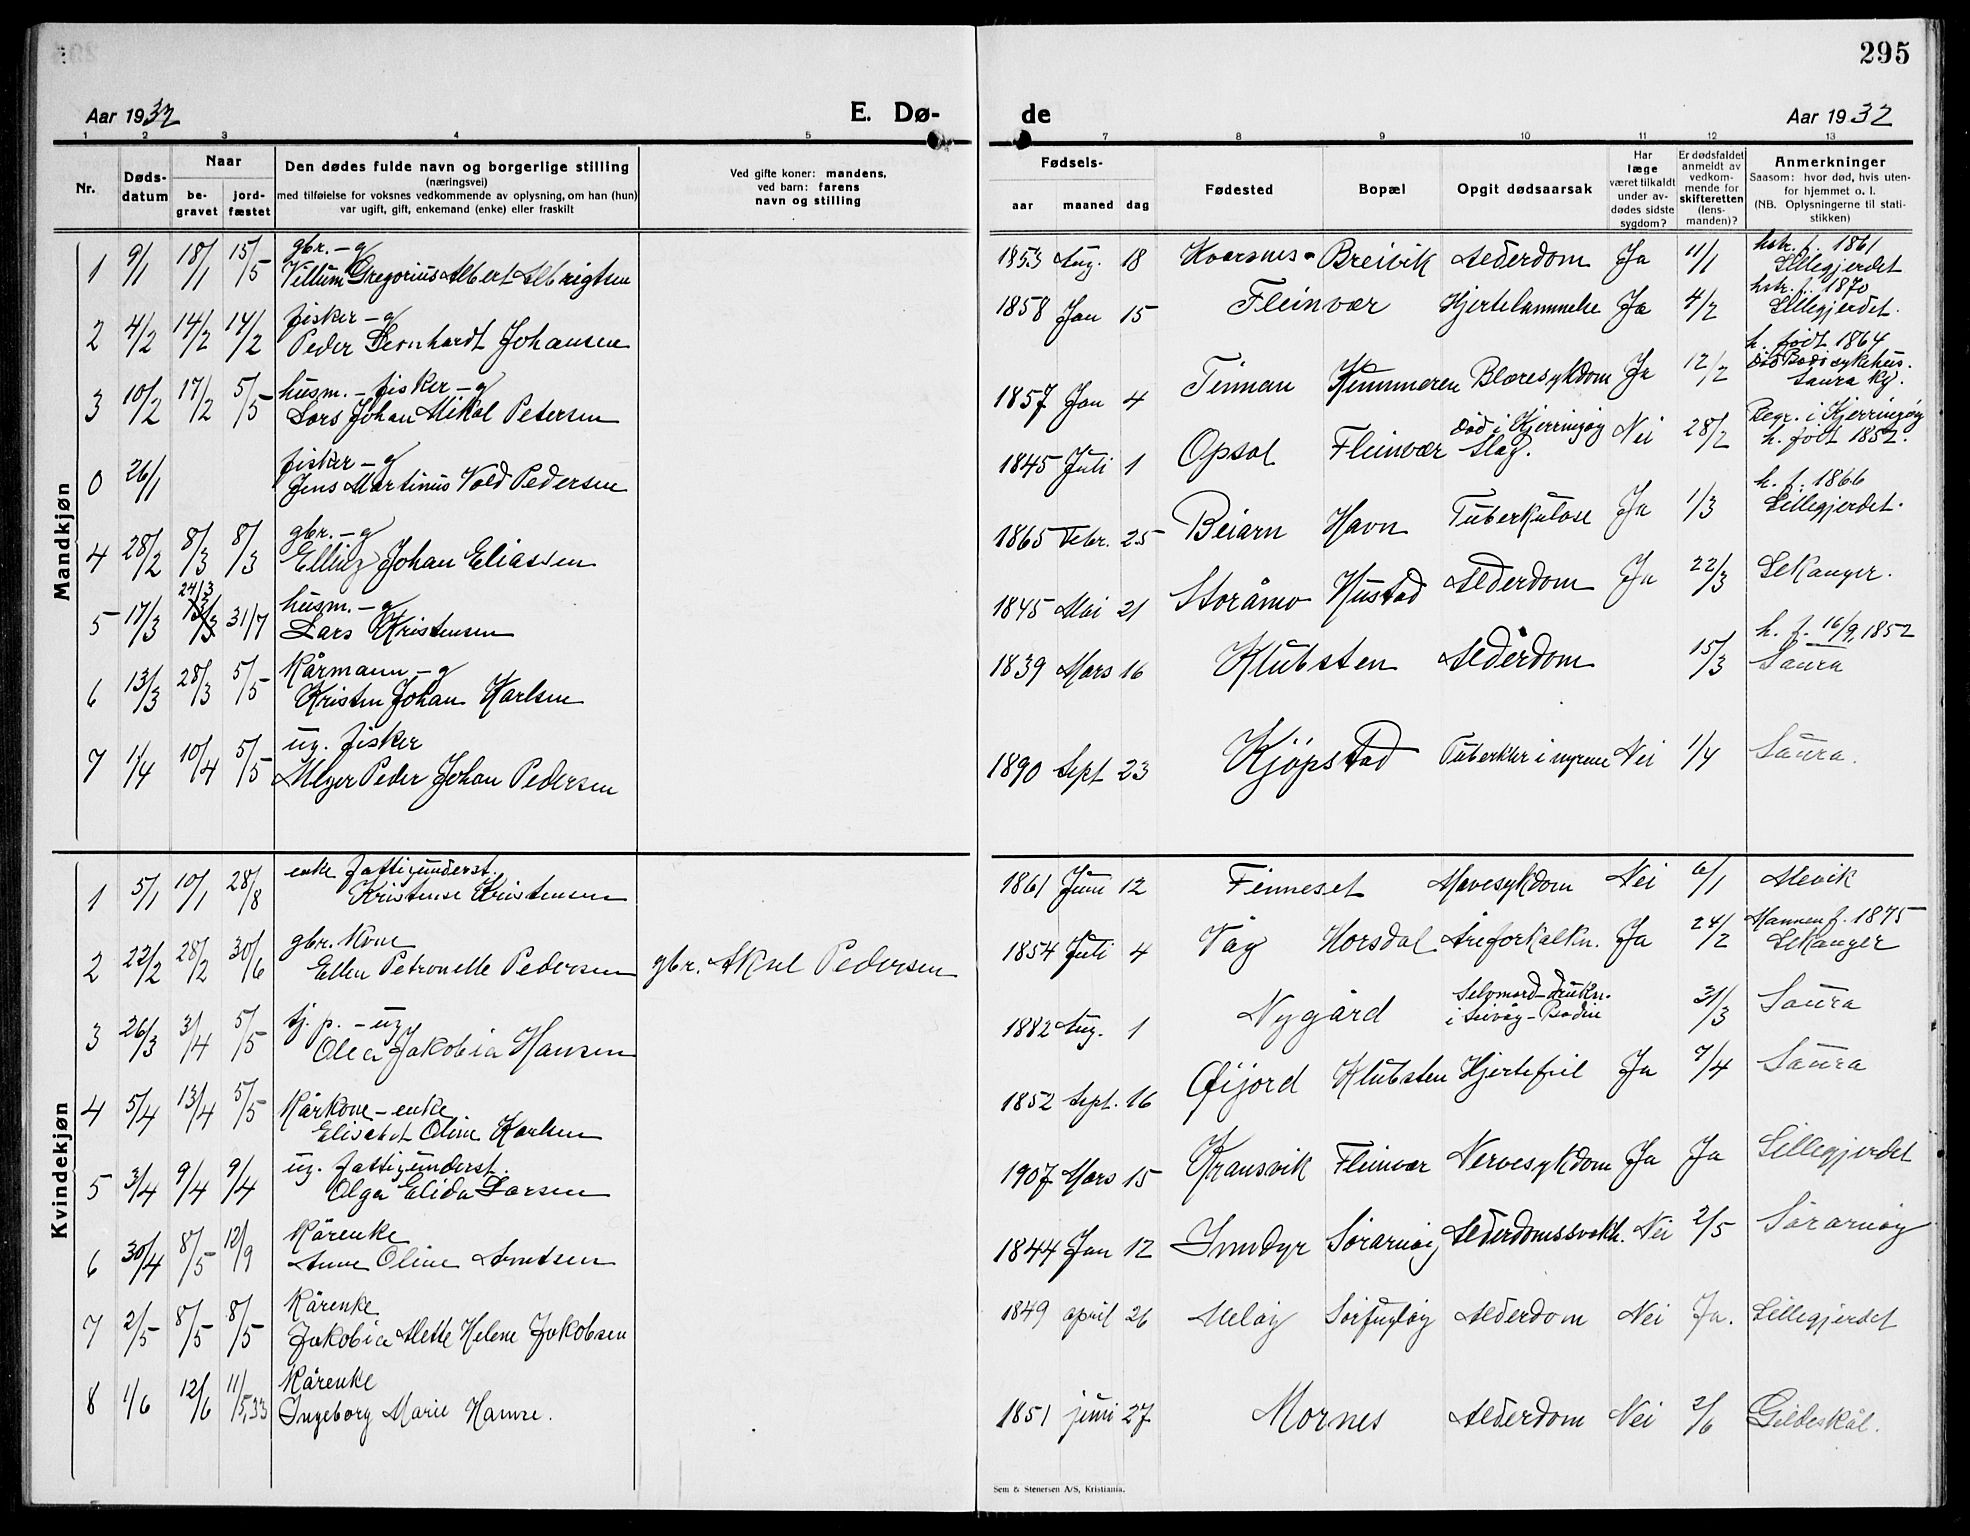 295
Aar 1932 E. Dø- de Aar 1932
1 2 3 4 5 7 8 9 10 11 12 13
Nr. Døds-datum Naar be-gravet jord-fæstet Den dødes fulde navn og borgerlige stilling (næringsvei) med tilføielse for voksnes vedkommende av oplysning, om han (hun) var ugift, gift, enkemand (enke) eller fraskilt Ved gifte koner: mandens, ved barn: farens navn og stilling Fødsels- aar maaned dag Fødested Bopæl Opgit dødsaarsak Har læge været tilkaldt under av-dødes sidste sygdom? Er dødsfaldet anmeldt av vedkom-mende for skifteretten (lens-manden)? Anmerkninger Saasom: hvor død, hvis uten-for hjemmet o. l. (NB. Oplysningerne til stati-stikken)
Mandkjøn
gbr. - g hstr. f. 1861
1 9/1 18/1 15/5 Villum Gregorius Albert Albrigtsen 1853 Aug. 18 Kvarsnes - Breivik Alderdom Ja 11/1 Lillegjerdet
fisker - g hstr. f. 1870
2 4/2 14/2 14/2 Peder Bernhardt Johansen 1858 Jan 15 Fleinvær Hjertelammelse Ja 4/2 Lillegjerdet.
husm. - fisker - g h. født 1864
3 10/2 17/2 5/5 Lars Johan Mikal Petersen 1857 Jan 4 Finnan Blæresykdom Ja 12/2 død Bodø sykehus. Saura kg.
fisker - g død i Kjerringøy Begr. i Kjerringøy
0 26/1 Jens Martinus Vold Pedersen 1845 Juli 1 Opsal Fleinvær Slag. Nei 28/2 h. født 1852.
gbr. - g h. f. 1866
4 28/2 8/3 8/3 Elling Johan Eliassen 1865 Febr. 25 Beiarn Havn Tuberkulose Ja 1/3 Lillegjerdet.
24/3 husm. - g
5 17/3 31/7 Lars Kristensen 1845 Mai 21 Storåmo Hustad Alderdom Ja 22/3 Lekanger.
Kårmann - g h. f. 16/9, 1852
6 13/3 28/3 5/5 Kristen Johan Karlsen 1839 Mars 16 Klubsten Alderdom 15/3 Saura
ug. fisker
7 1/4 10/4 5/5 Meyer Peder Johan Pedersen 1890 Sept 23 Kjöpstad Tuberkler i nyrene Nei 1/4 Saura.
Kvindekjøn
enke fattigunderst.
1 5/1 10/1 28/8 Kristense Kristensen 1861 Juni 12 Finneset Mavesykdom Nei 6/1 Mevik
gbr. kone Mannen f. 1875
2 22/2 28/2 30/6 Ellen Petronelle Pedersen gbr. Aksel Pedersen 1854 Juli 4 Våg Horsdal Åreforkalkn. Ja 24/2 Lekanger
tj. p. - ug Selvmord - Drukn.
3 26/3 3/4 5/5 Olea Jakobia Hansen 1882 Aug. 1 Nygård i Seivåg - Bodin 31/3 Saura
Kårkone - enke
4 5/4 13/4 5/5 Elisabet Oline Karlsen 1852 Sept. 16 Øijord Klubsten Hjertefeil Ja 7/4 Saura
ug. fattigunderst.
5 3/4 9/4 9/4 Olga Elida Larsen 1907 Mars 15 Kransvik Fleinvær Nervesykdom Ja Ja Lillegjerdet
Kårenke
6 30/4 8/5 12/9 Anne Oline Arntsen 1844 Jan 12 Inndyr Sörarnöy Alderdomssvakh. Nei 2/5 Sörarnöy
Kårenke
7 2/5 8/5 8/5 Jakobia Mette Helene Jakobsen 1849 april 26 Melöy Sörfugløy Alderdom Nei Ja. Lillegjerdet
Kårenke
8 1/6 12/6 11/5, 33 Ingeborg Marie Hamre. 1851 juni 27 Mornes Alderdom Nei 2/6 Gildeskål.
Sem & Stenersen A/S, Kristiania.